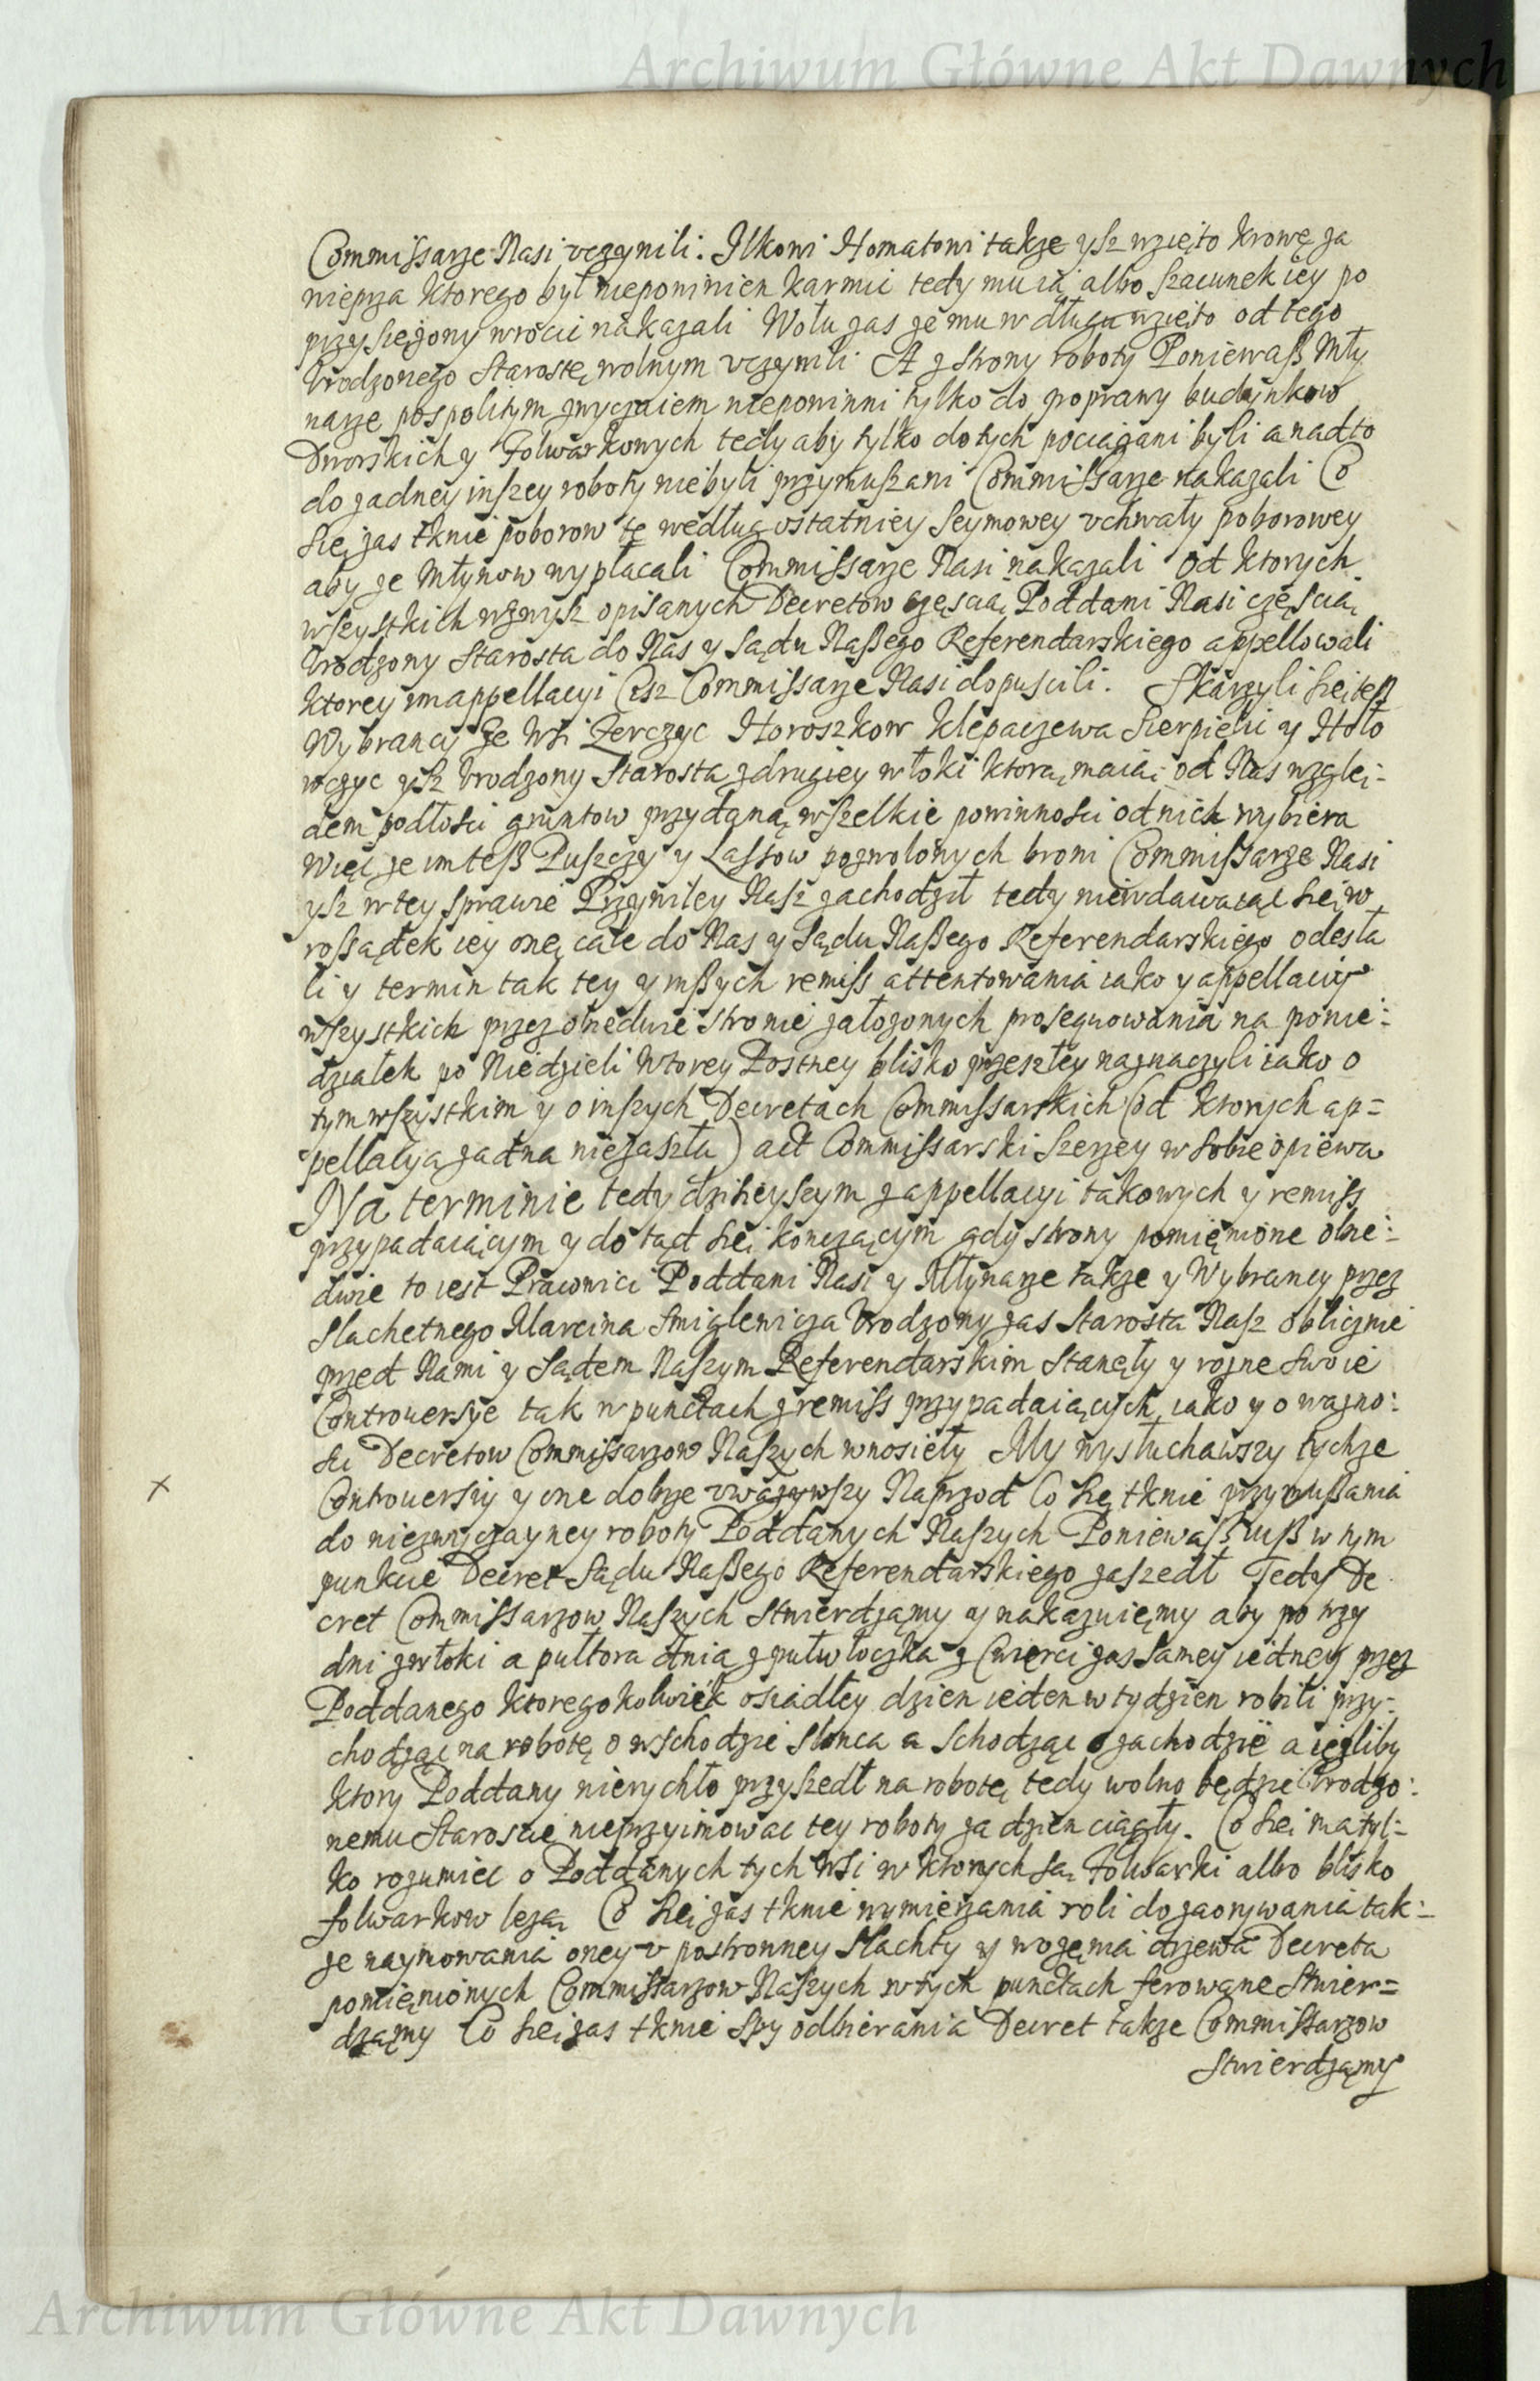 Archiwum Główne Akt Dawnych
Commissarze Nasi vczynili. Ilkowi Homatowi takze ysz wzięto krowę za
wieprza ktorego był niepowinien karmic tedy mu ią albo szacunek iey po
przysiężony wrocic nakazali Wołu zas ze mu w długu wzięto od tego
Vrodzonego Starostę wolnym vczynili A z strony roboty Poniewaß Mły
narze pospolitym zwyczaiem niepowinni tylko do poprawy budynkow
Dworskich y Folwarkowych tedy aby tylko do tych pociągani byli a nadto
do zadney inszey roboty niebyli przymuszani Commissarze nakazali Co
się zas tknie poborow te według ostatniey Seymowey vchwały poborowey
aby ze Młynow wypłacali Commissarze Nasi nakazali Od ktorych
wszystkich wzwysz opisanych Decretow częscią Poddani Nasi częscią
Vrodzony Starosta do Nas y Sądu Naßego Referendarskiego appellowali
ktorey im appellacyi Cisz Commissarze Nasi dopuscili. Skarzyli się teß
Wybrancy ze Wsi Zerczyc Horoszkow Klepaczewa Sierpielic y Hoło
wczyc ysz Vrodzony Starosta z drugiey włoki ktorą maią od Nas wzglę-
dem podłosci gruntow przydaną wszelkie powinnosci od nich wybiera
Więc ze im teß Puszczy y Lassow pozwolonych broni Commissarze Nasi
ysz w tey sprawie Przywiley Nasz zachodził tedy niewdawaiąc się w
roßądek iey onę cale do Nas y Sądu Naßego Referendarskiego odesła
li y termin tak tey y inßych remiss attentowania iako y appellaciy
wszystkich przez obiedwie stronie załozonych prosequowania na ponie-
działek po Niedzieli Wtorey Postney blisko przeszłey naznaczyli iako o
tym wszystkim y o inszych Decretach Commissarskich (od ktorych ap=
pellacyą zadna niezaszła) act Commissarski szerzey w sobie opiewa
Na terminie tedy dzisieyszym z appellacyi takowych y remiss
przypadaiącym y do tąd się konczącym gdy strony pomięnione obie-
dwie to iest Prawnici Poddani Nasi y Młynarze takze y Wybrancy przez
Slachetnego Marcina Smiglewicza Vrodzony zas Starosta Nasz oblicznie
przed Nami y Sądem Naszym Referendarskim stanęły y rozne swoie
Controuersye tak w punctach z remiss przypadaiących iako y o wazno-
sci Decretow Commissarzow Naszych wnosieły My wysłuchawszy tychze
x
Controuersiy y one dobrze vwazywszy Naprzod Co się tknie przymußania
do niezwyczayney roboty Poddanych Naszych Poniewaß iuß w tym
punkcie Decret Sądu Naßego Referendarskiego zaszedł Tedy De
cret Commissarzow Naszych stwierdzamy y nakazuięmy aby po trzy
dni z włoki a pułtora dnia z puł włoczka z Cwierci zas samey iedney przez
Poddanego ktoregokolwiek osiadłey dzien ieden w tydzien robili przy-
chodząc na robotę o wschodzie słonca a schodząc o zachodzie a iezliby
ktory Poddany nierychło przyszedł na robotę tedy wolno będzie Vrodzo-
nemu Staroscie nieprzyimowac tey roboty za dzien ciągły. Co się ma tyl-
ko rozumiec o Poddanych tych Wsi w ktorych są Folwarki albo blisko
folwarkow lezą Co się zas tknie wymierzania roli do zaorywania tak-
ze naymowania oney v postronney Slachty y wozęnia drzewa Decreta
pomięnionych Commissarzow Naszych w tych punctach ferowane stwier=
dzamy Co się zas tknie Spy odbierania Decret takze Commissarzow
stwierdzamy
Archiwum Główne Akt Dawnych